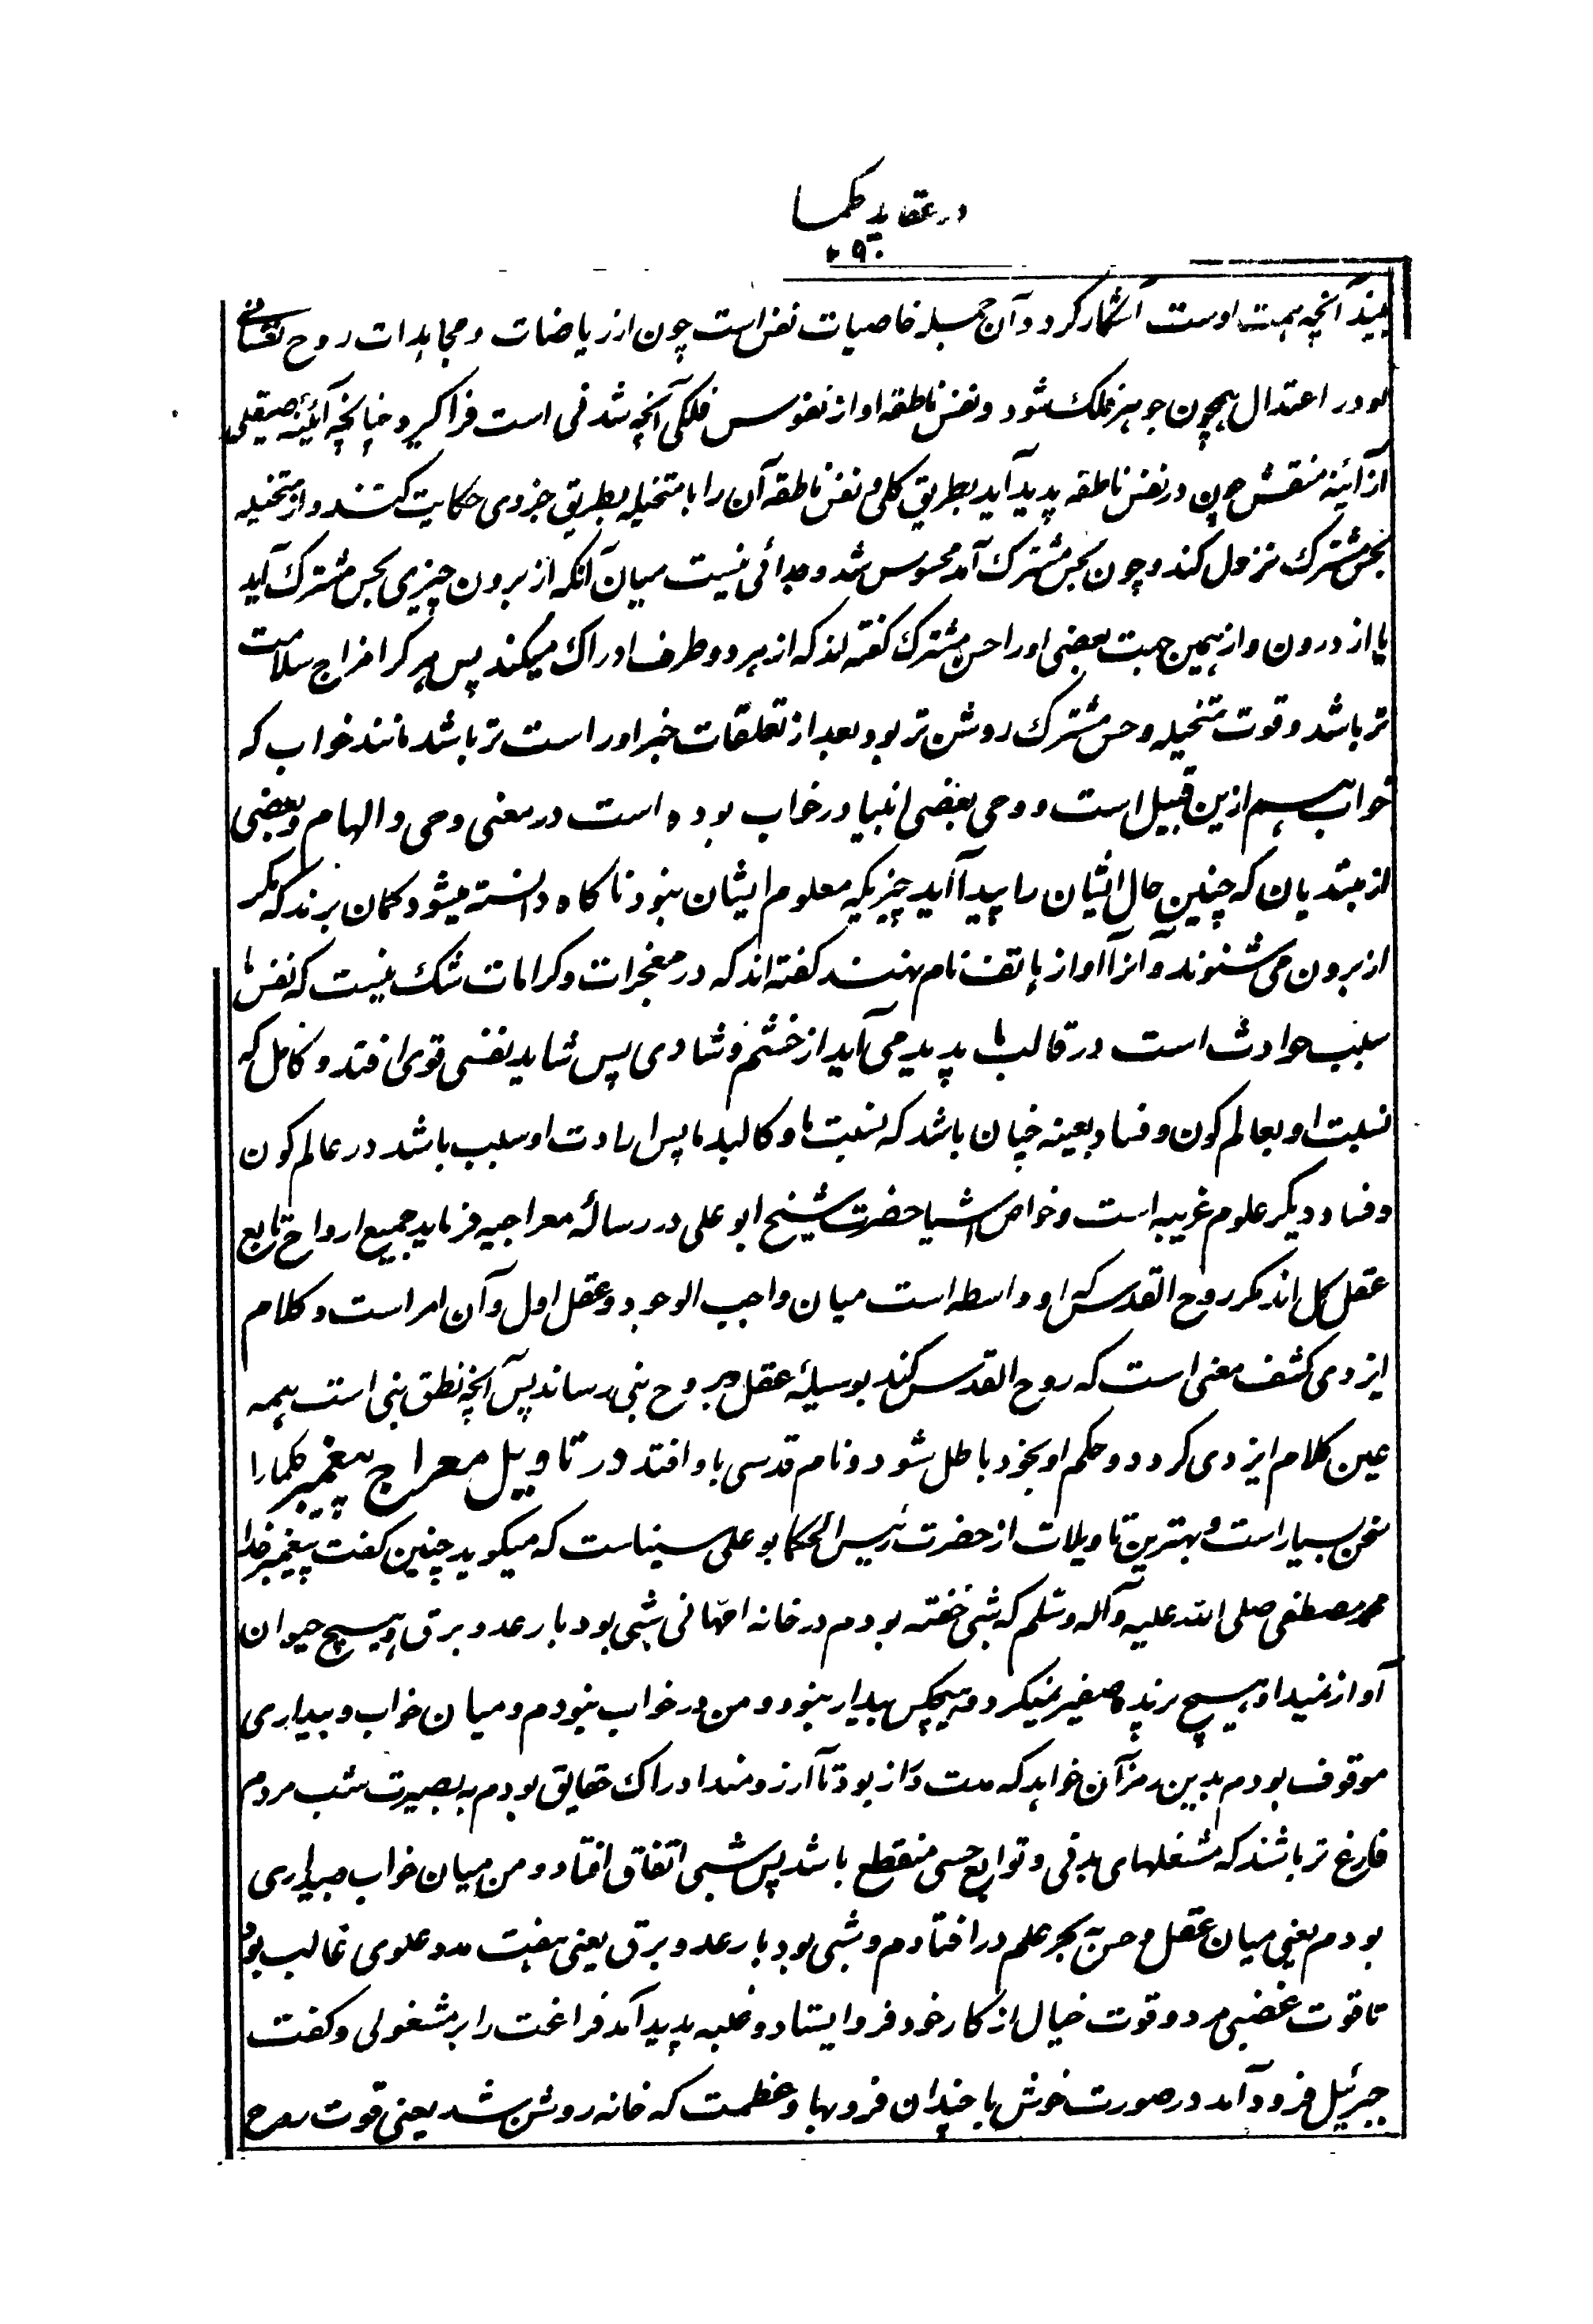 در عقاید حکما
۲۹۰
بیند آنچه همت اوست آشکار کردد و آن جمله خاصیات نفس است چون از ریاضات و مجاهدات روح نفسانی
او در اعتدال همچون جوهر فلک شود و نفس ناطقه او از نفوس فلکی آنچه شدنی است فرا کیرد چنانچه آئینه صیقلی
از آئینه منقش چون در نفس ناطقه پدید آید بطریق کلی نفس ناطقه آن را با متخیله بطریق جزوی حکایت کند و از متخیله
بحس مشترک نزول کند و چون بحس مشترک آمد محسوس شد و جدائی نیست میان آنکه از برون چیزی بحس مشترک آید
یا از درون و از همین جهت بعضی او را حس مشترک گفته‌اند که از هر دو طرف ادراک میکند پس هر کرا مزاج سلامت
تر باشد و قوت متخیله و حس مشترک روشن تر بود بعد از تعلقات خبر او راست تر باشد مانند خواب که
خواب هم ازین قبیل است و وحی بعضی انبیا در خواب بوده است در معنی وحی و الهام و بعضی
از مبتدیان که چنین حال ایشان را پیدا آید چیزیکه معلوم ایشان نبود ناکاه دانسته میشود کمان برند که مکر
از برون می شنوند و آنرا آواز هاتف نام نهند کفته اند که در معجزات و کرامات شک نیست که نفس ما
سبب حوادث است در قالب ما پدید می آید از خشم و شادی پس شاید نفسی قوی افتد و کامل که
نسبت او بعالم کون و فساد بعینه چنان باشد که نسبت ما و کالبد ما پس ارادت او سبب باشد در عالم کون
و فساد و دیگر علوم غریبه است و خواص اشیا حضرت شیخ ابو علی در رساله معراجیه فرماید جمیع ارواح تابع
عقل کل اند مکر روح القدس که او واسطه است میان واجب الوجود و عقل اول و آن امر است و کلام
ایزدی کشف معنی است که روح القدس کند بوسیلۀ عقل و بروح نبی رساند پس آنچه نطق نبی است همه
عین کلام ایزدی کردد و حکم او بخود باطل شود و نام قدسی باو افتد در تاویل معراج پیغمبر حکما را
سخن بسیار است و بهترین تاویلات از حضرت رئیس الحکما بو علی سیناست که میکوید چنین کفت پیغمبر خدا
محمد مصطفی صلی الله علیه و آله و سلم که شبی خفته بودم در خانه امهانی شبی بود با رعد و برق و هیچ حیوان
آواز نمیداد و هیچ پرنده صفیر نمیکرد و هیچکس بیدار نبود و من در خواب نبودم و میان خواب و بیداری
موقوف بودم بدین رمز آن خواهد که مدت دراز بود تا آرزومند ادراک حقایق بودم به بصیرت شب مردم
فارغ تر باشند که مشغلهای بدنی و توابع حسی منقطع باشد پس شبی اتفاق افتاد و من میان خواب و بیداری
بودم یعنی میان عقل و حس ببحر علم در افتادم و شبی بود با رعد و برق یعنی هفت مدد علوی غالب بود
تا قوت غضبی مرد و قوت خیال از کار خود فرو ایستاد و غلبه پدید آمد فراغت را بر مشغولی و کفت
جبرئیل فرود آمد در صورت خوش با چندان فر و بها و عظمت که خانه روشن شد یعنی قوت روح